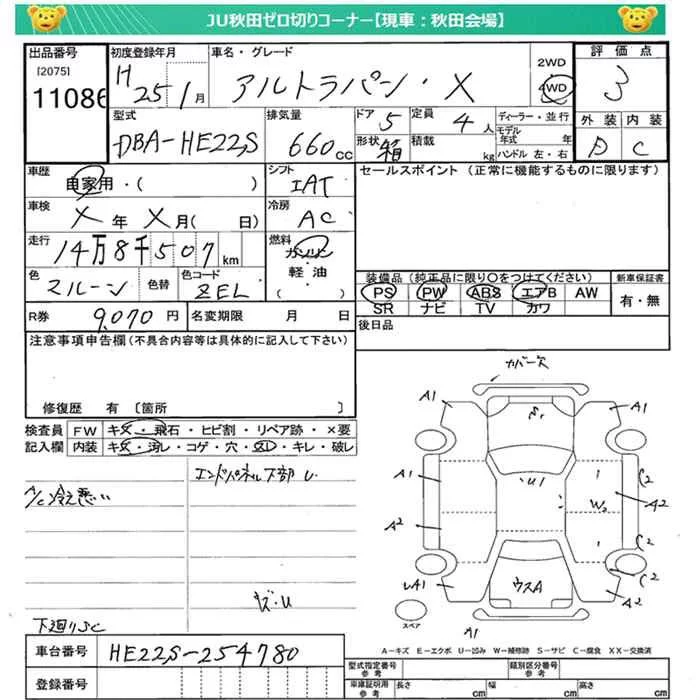 JU秋田ゼロ切りコーナー【現車：秋田会場】
出品番号 初度登録年月 車名・グレード 2WD 評価点
[2075] H 25 1月 アルトラパン・X 4WD 3
11086
型式 排気量 ドア 5 定員 4人 ディーラー・並行 外装 内装
DBA-HE22S 660cc 形状 箱 積載 kg モデル年式 年 D C
ハンドル 左・右
車歴 自家用・( ) シフト IAT セールスポイント (正常に機能するものに限ります)
車検 X年 X月( 日) 冷房 AC
走行 14万8千507km 燃料 ガソリン
色 色替 色コード ZEL 軽油 装備品 (純正品に限り〇をつけてください) 新車保証書
( ) PS PW ABS エアB AW 有・無
SR ナビ TV カワ
R券 9,070円 名変期限 月 日 後日品
注意事項申告欄 (不具合内容等は具体的に記入して下さい)
修復歴 有 〔箇所 〕
検査員 FW キズ・飛石・ヒビ割・リペア跡・×要
記入欄 内装 キズ・汚レ・コゲ・穴・スレ・キレ・破レ
エンドパネル下部 U
A/C冷え悪い
キズ・U
下廻りSC
カバー欠
A1 S1 A1
A1 U1 C2
W2 A2
A2
C2
A1 ウスA A2
A1
スペア
A-キズ E-エクボ U-凹み W-補修跡 S-サビ C-腐食 XX-交換済
車台番号 HE22S-254780
登録番号
型式指定番号 参考 類別区分番号 参考
車庫証明用 参考 長さ cm 幅 cm 高さ cm